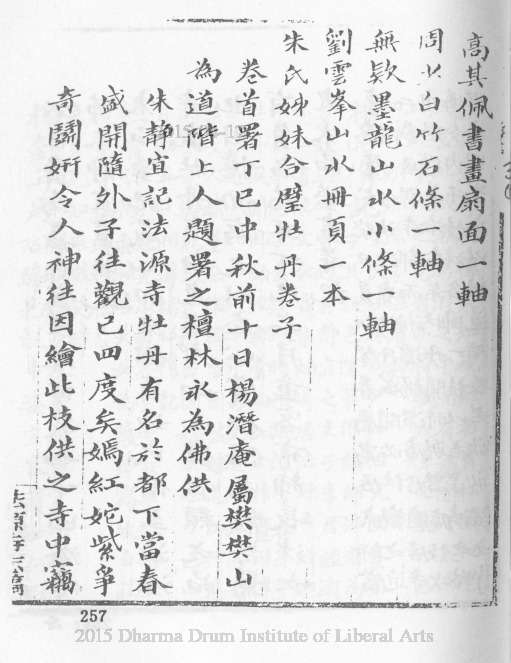 高其佩書畫扇面一軸
周少白竹石條一軸
無款墨龍山水小條一軸
劉雲峯山水冊頁一本
朱氏姊妹合璧牡丹卷子
卷首署丁巳中秋前十日楊潛庵屬樊樊山
為道階上人題署之檀林永為佛供
朱靜宜記法源寺牡丹有名於都下當春
盛開隨外子往觀已四度矣嫣紅奼紫爭
奇鬭妍令人神往因繪此枝供之寺中竊
法源寺志稿
257
2015 Dharma Drum Institute of Liberal Arts